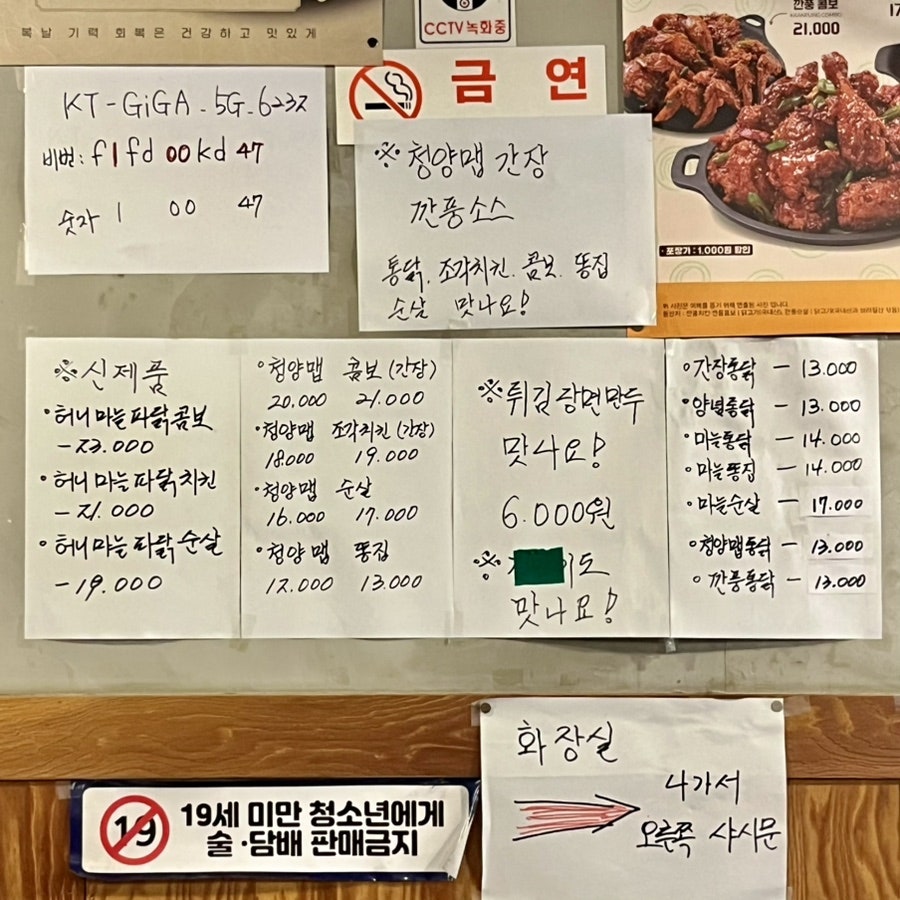 복날 기력 회복은 건강하고 맛있게
CCTV 녹화중
금연
깐풍 콤보
21.000
포장가 : 1.000원 할인
KT-GiGA-5G-6232
비번: f1fd00kd47
숫자 1 00 47
※ 청양맵 간장
깐풍소스
통닭. 조각치킨. 콤보. 똥집
순살 맛나요!
※신제품
•허니마늘파닭콤보
-23.000
•허니마늘파닭치킨
-21.000
•허니마늘파닭순살
-19.000
•청양맵 콤보 (간장)
20.000 21.000
•청양맵 조각치킨 (간장)
18.000 19.000
•청양맵 순살
16.000 17.000
•청양맵 똥집
12.000 13.000
※튀김당면만두
맛나요!
6.000원
※ 이도
맛나요!
간장통닭 - 13.000
양념통닭 - 13.000
마늘통닭 - 14.000
마늘똥집 - 14.000
마늘순살 - 17.000
청양맵통닭 - 13.000
깐풍통닭 - 13.000
화장실
나가서
오른쪽 샤시문
19
19세 미만 청소년에게
술·담배 판매금지